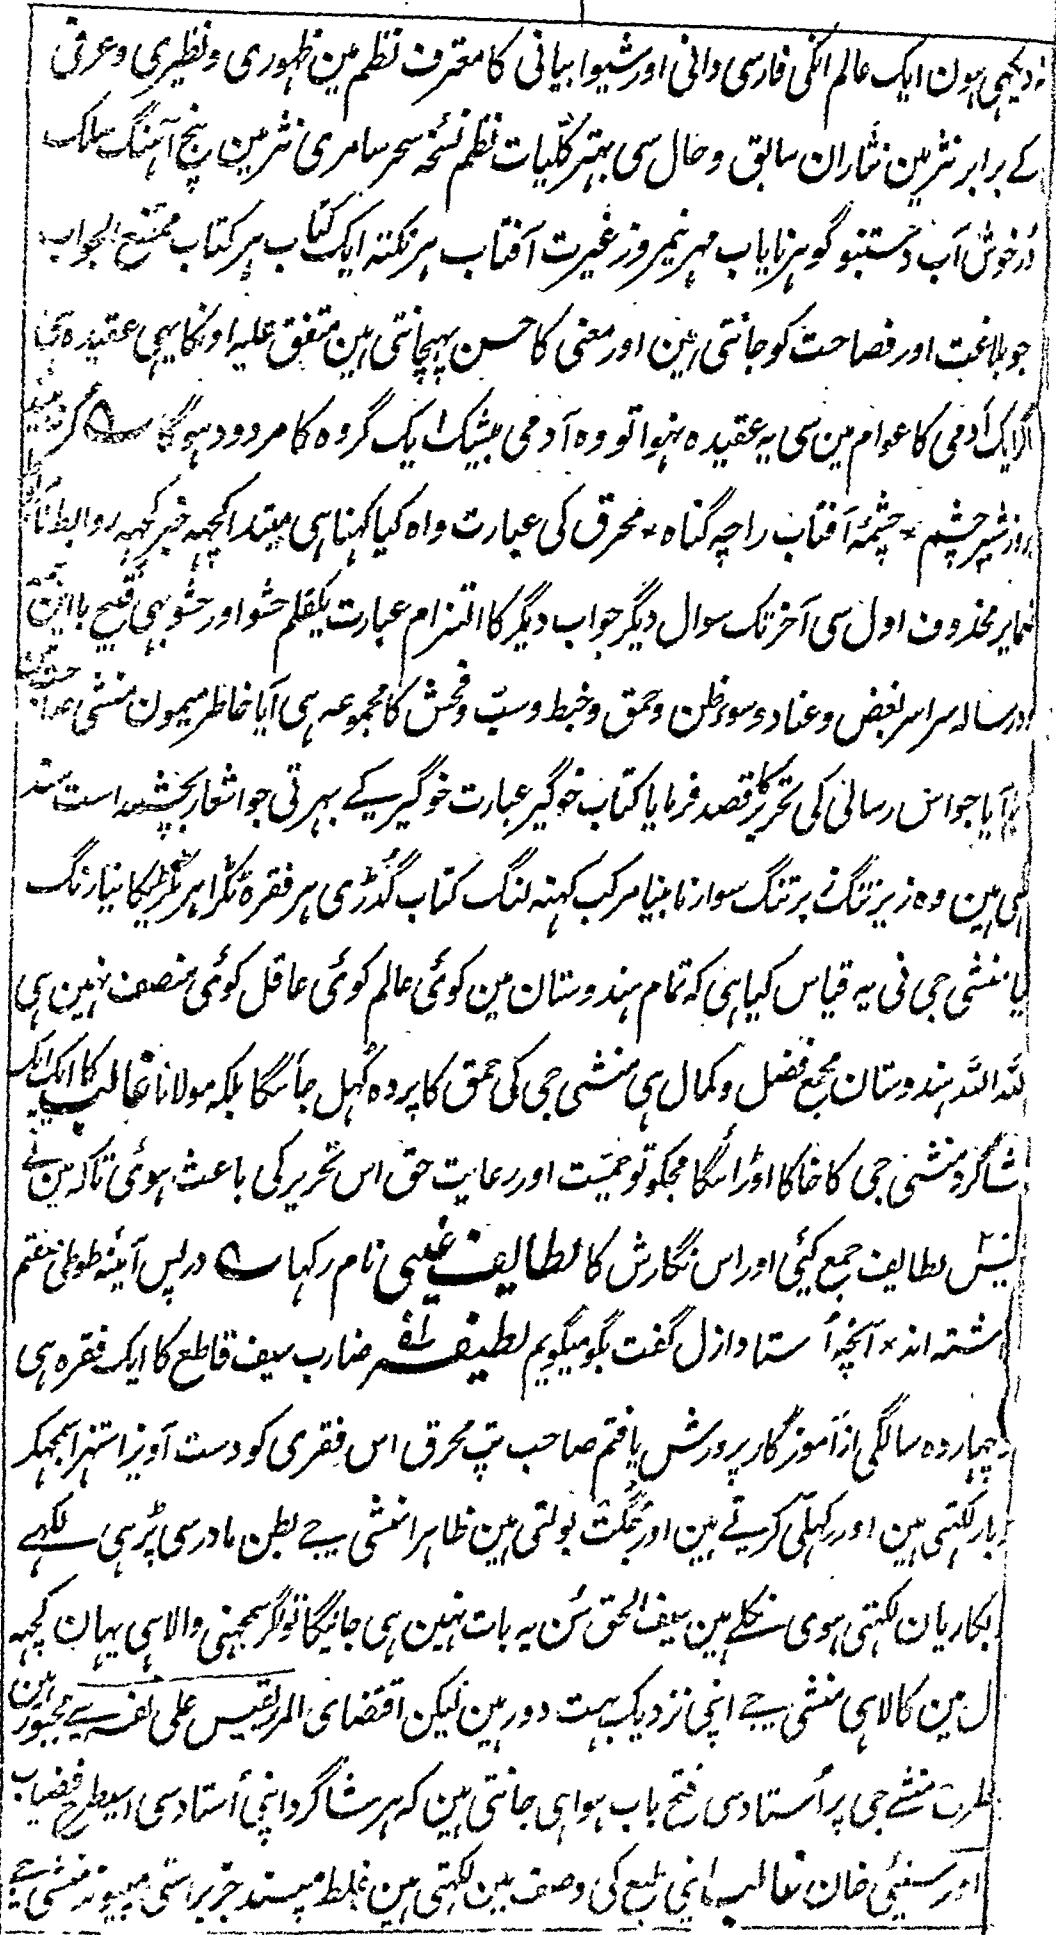 نہ دیکہی ہون ایک عالم انکی فارسی دانی اور شیوا بیانی کا معترف نظم مین ظہوری و نظیری و عرفی
کے برابر نثر مین نثاران سابق و حال سی بہتر کلّیات نظم نسخہ سحر سامری نثر مین پنج آہنگ سلک
دُر خوش آب دستنبو گوہر نایاب مہر نیمروز غیرت آفتاب ہر نکتہ ایک کتاب ہر کتاب ممتنع الجواب
جو بلاغت اور فصاحت کو جانتی ہین اور معنی کا حسن پہچانتی ہین متفق علیہ اونکا یہی عقیدہ ہی
اگر ایک آدمی کا عوام مین سی یہ عقیدہ نہوا تو وہ آدمی بیشک ایک گروہ کا مردود ہوگا ؎ گر نہ بیند
بروز شپّر چشم * چشمۂ آفتاب را چہ گناہ * محرق کی عبارت واہ کیا کہنا ہی مبتدا کچہہ خبر کچہہ روابط
ضمایر محذوف اول سی آخر تک سوال دیگر جواب دیگر کا التزام عبارت یکقلم حشو اور حشو بہی قبیح با این
اور رسالہ سراسر بغض و عناد و سوء ظن و حمق و خبط و سبّ و فحش کا مجموعہ ہی آیا خاطر میمون منشی
آیا جو اس رسالی کی تحریر کا قصد فرمایا کتاب خوگیر عبارت خوگیر کے بہرتی جو اشعار
ہی ہین وہ زیر تنگ بر تنگ سوار نابینا مرکب کہنہ لنگ کتاب گُدڑی ہر فقرہ ٹکڑا ہر ٹکڑیکا نیا رنگ
یا منشی جی نی یہ قیاس کیا ہی کہ تمام ہندوستان مین کوئی عالم کوئی عاقل کوئی منصف نہین ہی
للہ اللہ ہندوستان مجمع فضل و کمال ہی منشی جی کی حمق کا پردہ کُہل جائیگا بلکہ مولانا غالب کا ایک ایک
شاگرد منشی جی کا خاکا اوڑائیگا مجکو تو حمیّت اور رعایت حق اس تحریر کی باعث ہوئی تاکہ مین نے
لطایف جمع کیئی اور اس نگارش کا لطایف غیبی نام رکہا ؎ در پس آئنہ طوطی صفتم
داشتہ اند * آنچہ اُستاد ازل گفت بگو میگویم لطیفہ ضارب سیف قاطع کا ایک فقرہ ہی
چہاردہ سالگی از آموزگار پرورش یافتم صاحب تپ محرق اس فقری کو دست آویز استہزا سمجہکر
بار لکہتی ہین اور کہلّی کرتے ہین اور جُگت بولتی ہین ظاہرا منشی جے بطن مادر سی پڑہی لکہے
ابکاریان لکہتی ہوی نکلے ہین سیف الحق سُن یہ بات نہین ہی جائیگا تو گر سمجہنی والا ہی یہان کچہہ
ل مین کالا ہی منشی جے اپنی نزدیک بہت دور ہین لیکن اقتضای المرء یقیس علی نفسہ سے مجبور ہین
منشے جی پر اُستاد سی فتح باب ہوا ہی جانتی ہین کہ ہر شاگرد اپنی اُستاد سی اسیطرح فیضیاب
خان غالب اپنی طبع کی وصف مین لکہتی ہین غلط مپسند جز براستی مپیوند منشی جے